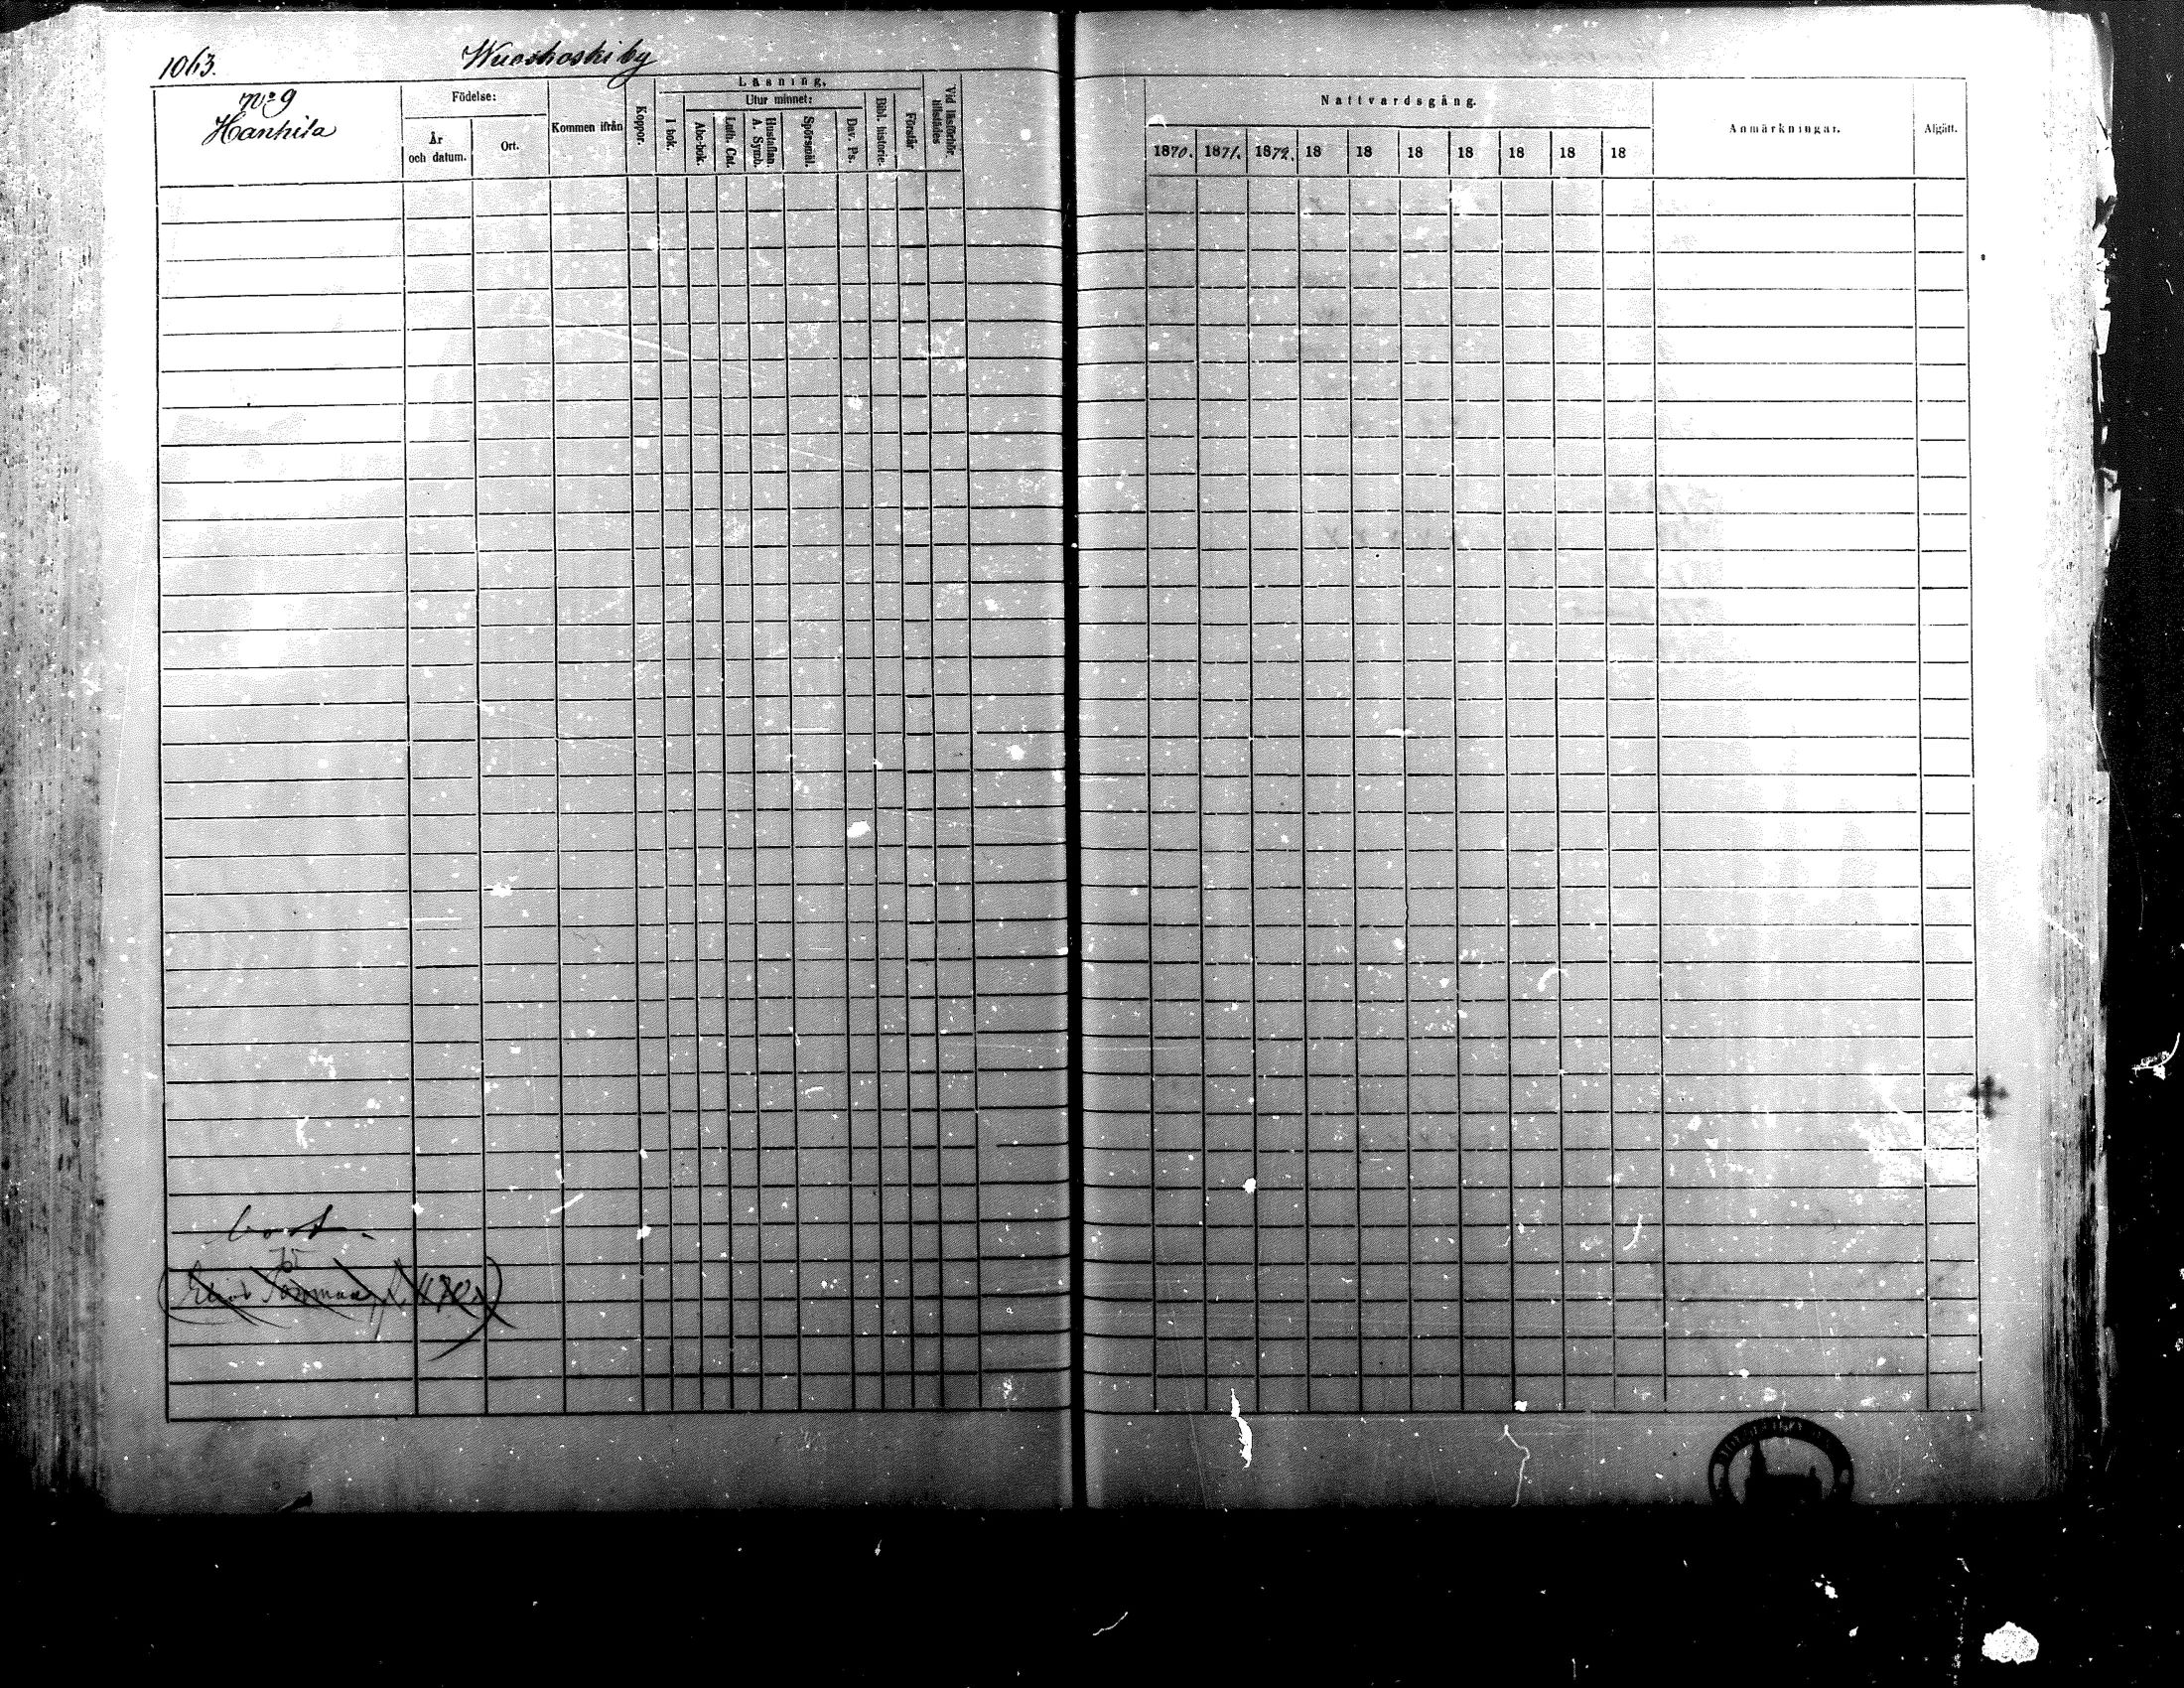 1063. Wuoskoski by
No 9
Hanhila
Födelse:
År och datum.
Ort.
Kommen ifrån
Koppor.
Läsning,
I bok.
Utur minnet:
Abc-bok.
Luth. Cat.
Hustaflan A. Symb.
Spörsmål.
Dav. Ps.
Bibl. historie.
Förstår
Vid läsförhör tillstädes
Nattvardsgång.
1870. 1871. 1872. 18 18 18 18 18 18 18
Anmärkningar.
Afgått.
bort.